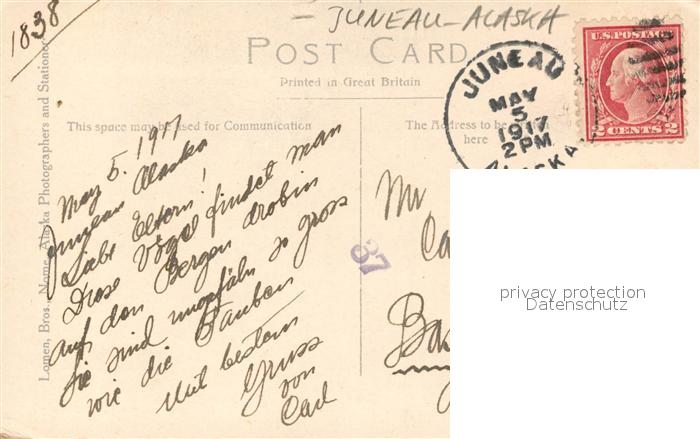 1838
- JUNEAU - ALASKA
POST CARD
Printed in Great Britain
This space may be used for Communication
The Address to be
here
JUNEAU
MAY
5
1917
2 PM
ALASKA
U.S. POSTAGE
2 CENTS 2
Lomen, Bros., Nome, Alaska Photographers and Stationers
May 5. 1917
Juneau Alaska
Liebe Eltern!
Diese Vögel findet man
auf den Bergen drobin
sie sind ungefähr so gross
wie die Tauben
Mit bestem
Gruss
von
Carl
37
Mr
Ca
Bas
privacy protection
Datenschutz